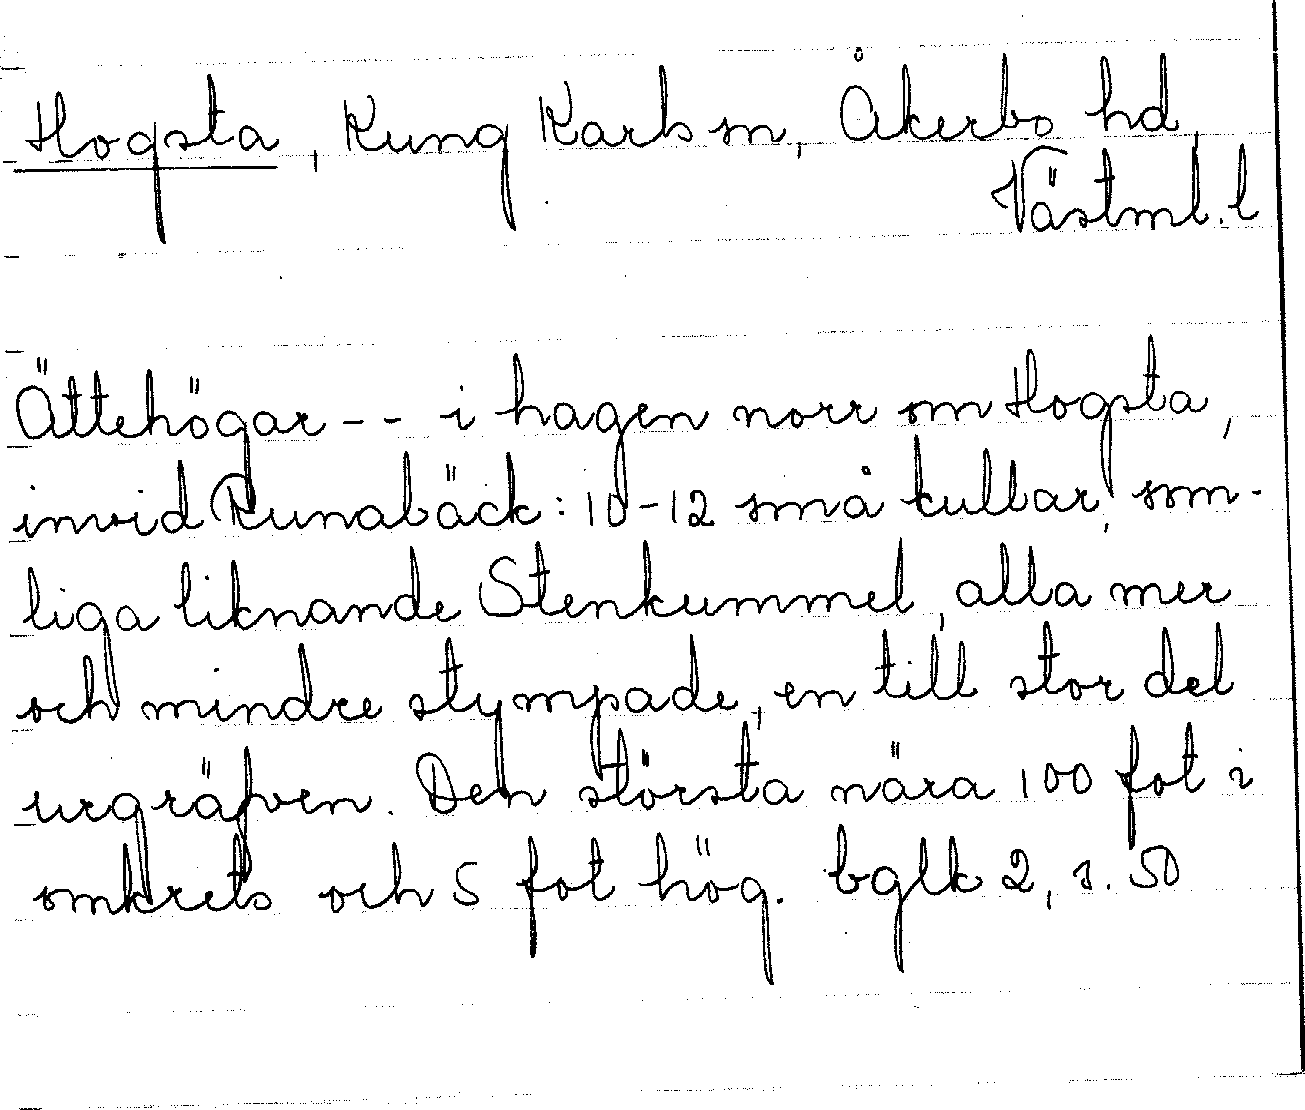 Hogsta, Kung Karls sn, Åkerbo hd,
Västml. l
Ättehögar -- i hagen norr om Hogsta,
invid Runabäck: 10-12 små kullar, som-
liga liknande Stenkummel, alla mer
och mindre stympade, en till stor del
urgräfven. Den största nära 100 fot i
omkrets och 5 fot hög. bglk 2, s. 50